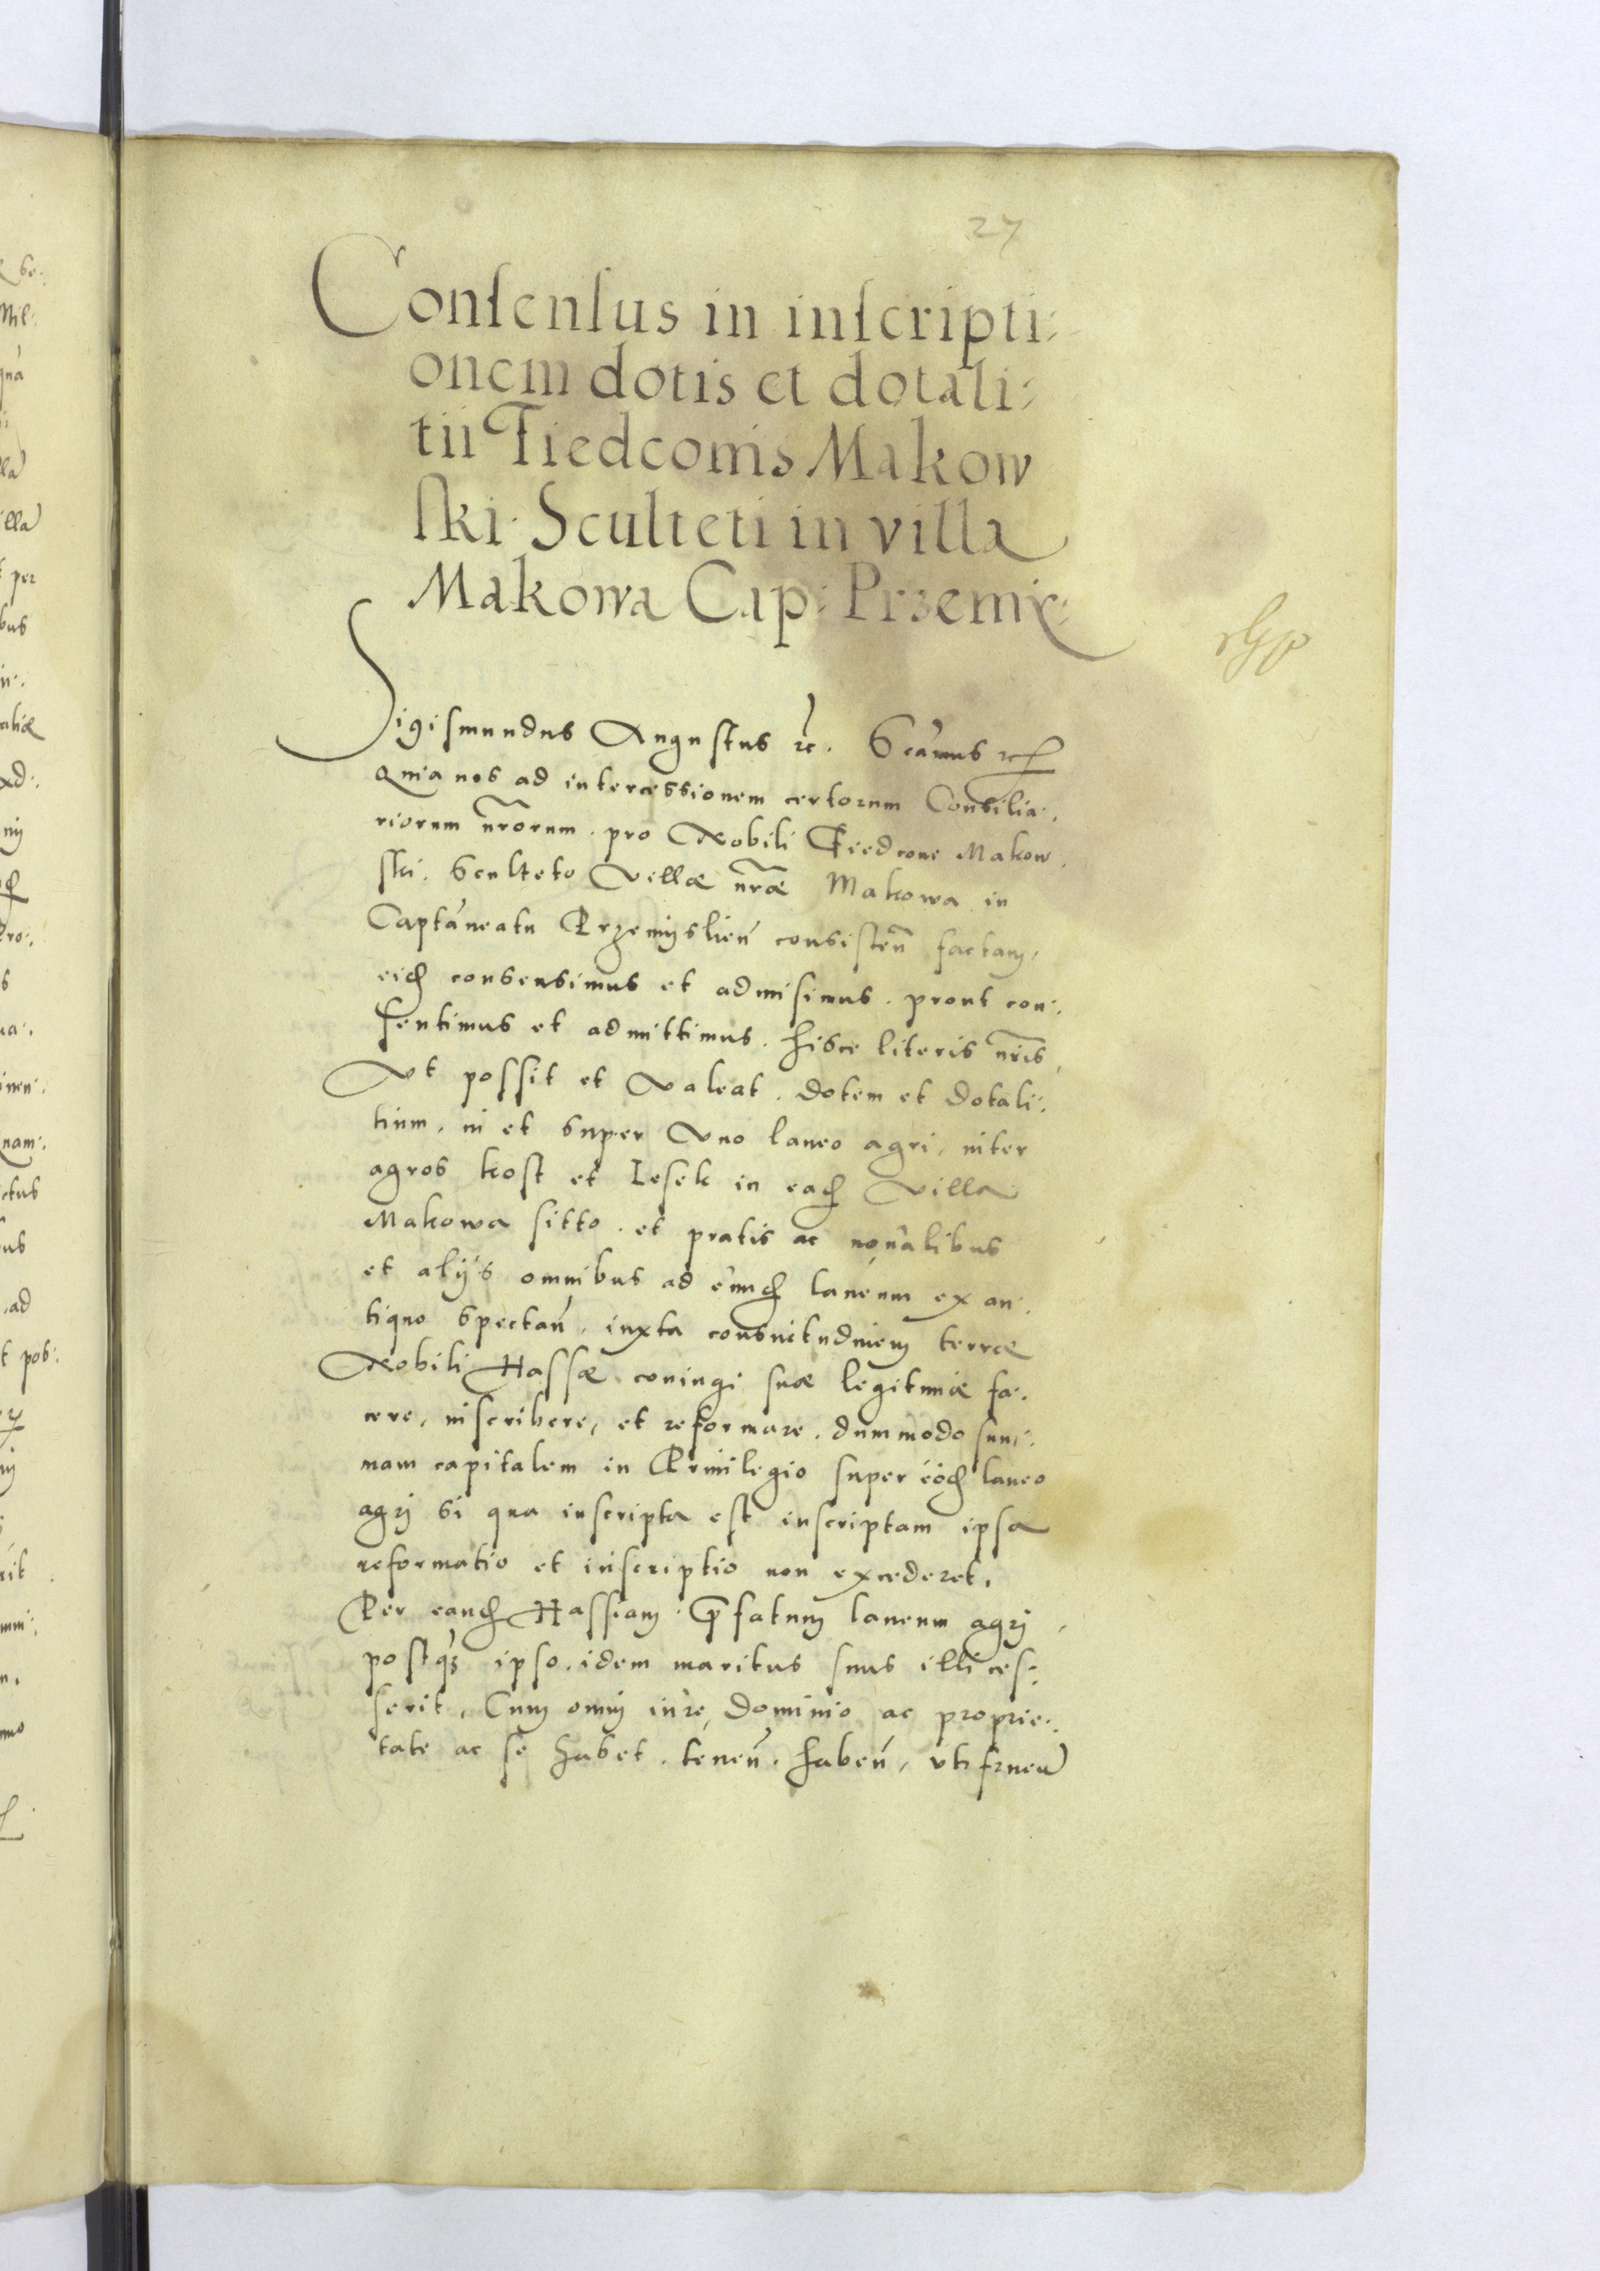 27
Consensus in inscripti:
onem dotis et dotali:
tii Fiedconis Makow
ski Sculteti in villa
Makowa Cap: Przemÿs:
Sigismundus Augustus rc. Scāmus
Quia nos ad intercessionem certorum Consilia:
riorum nrorum. pro Nobili Fiedcone Makow.
ski. Sculteto Villæ nræ Makowa in
Captaneatu Przemyslien consisten factam,
eid consensimus et admisimus. prout con:
sentimus et admittimus. hisce literis nris,
Vt possit et valeat. dotem et dotali:
tium. in et super vno laneo agri, inter
agros kost et Lesek in ead villa
Makowa sitto. et pratis ac noualibus
et alÿs omnibus ad eund laneum ex an:
tiquo spectan, iuxta consuetudinem terræ
Nobili Hassæ coniugi suæ legitimæ fa:
cere, inscribere, et reformare. dummodo sum:
mam capitalem in Priuilegio super eod laneo
agrj si qua inscripta est inscriptam ipsa
reformatio et inscriptio non excederet.
Per eand Hassiam pfatum laneum agrj,
postq ipso. idem maritus suus illi ces:
serit, Cum omni iure, dominio ac proprie:
tate ac se habet. tenen. haben, vtifruen